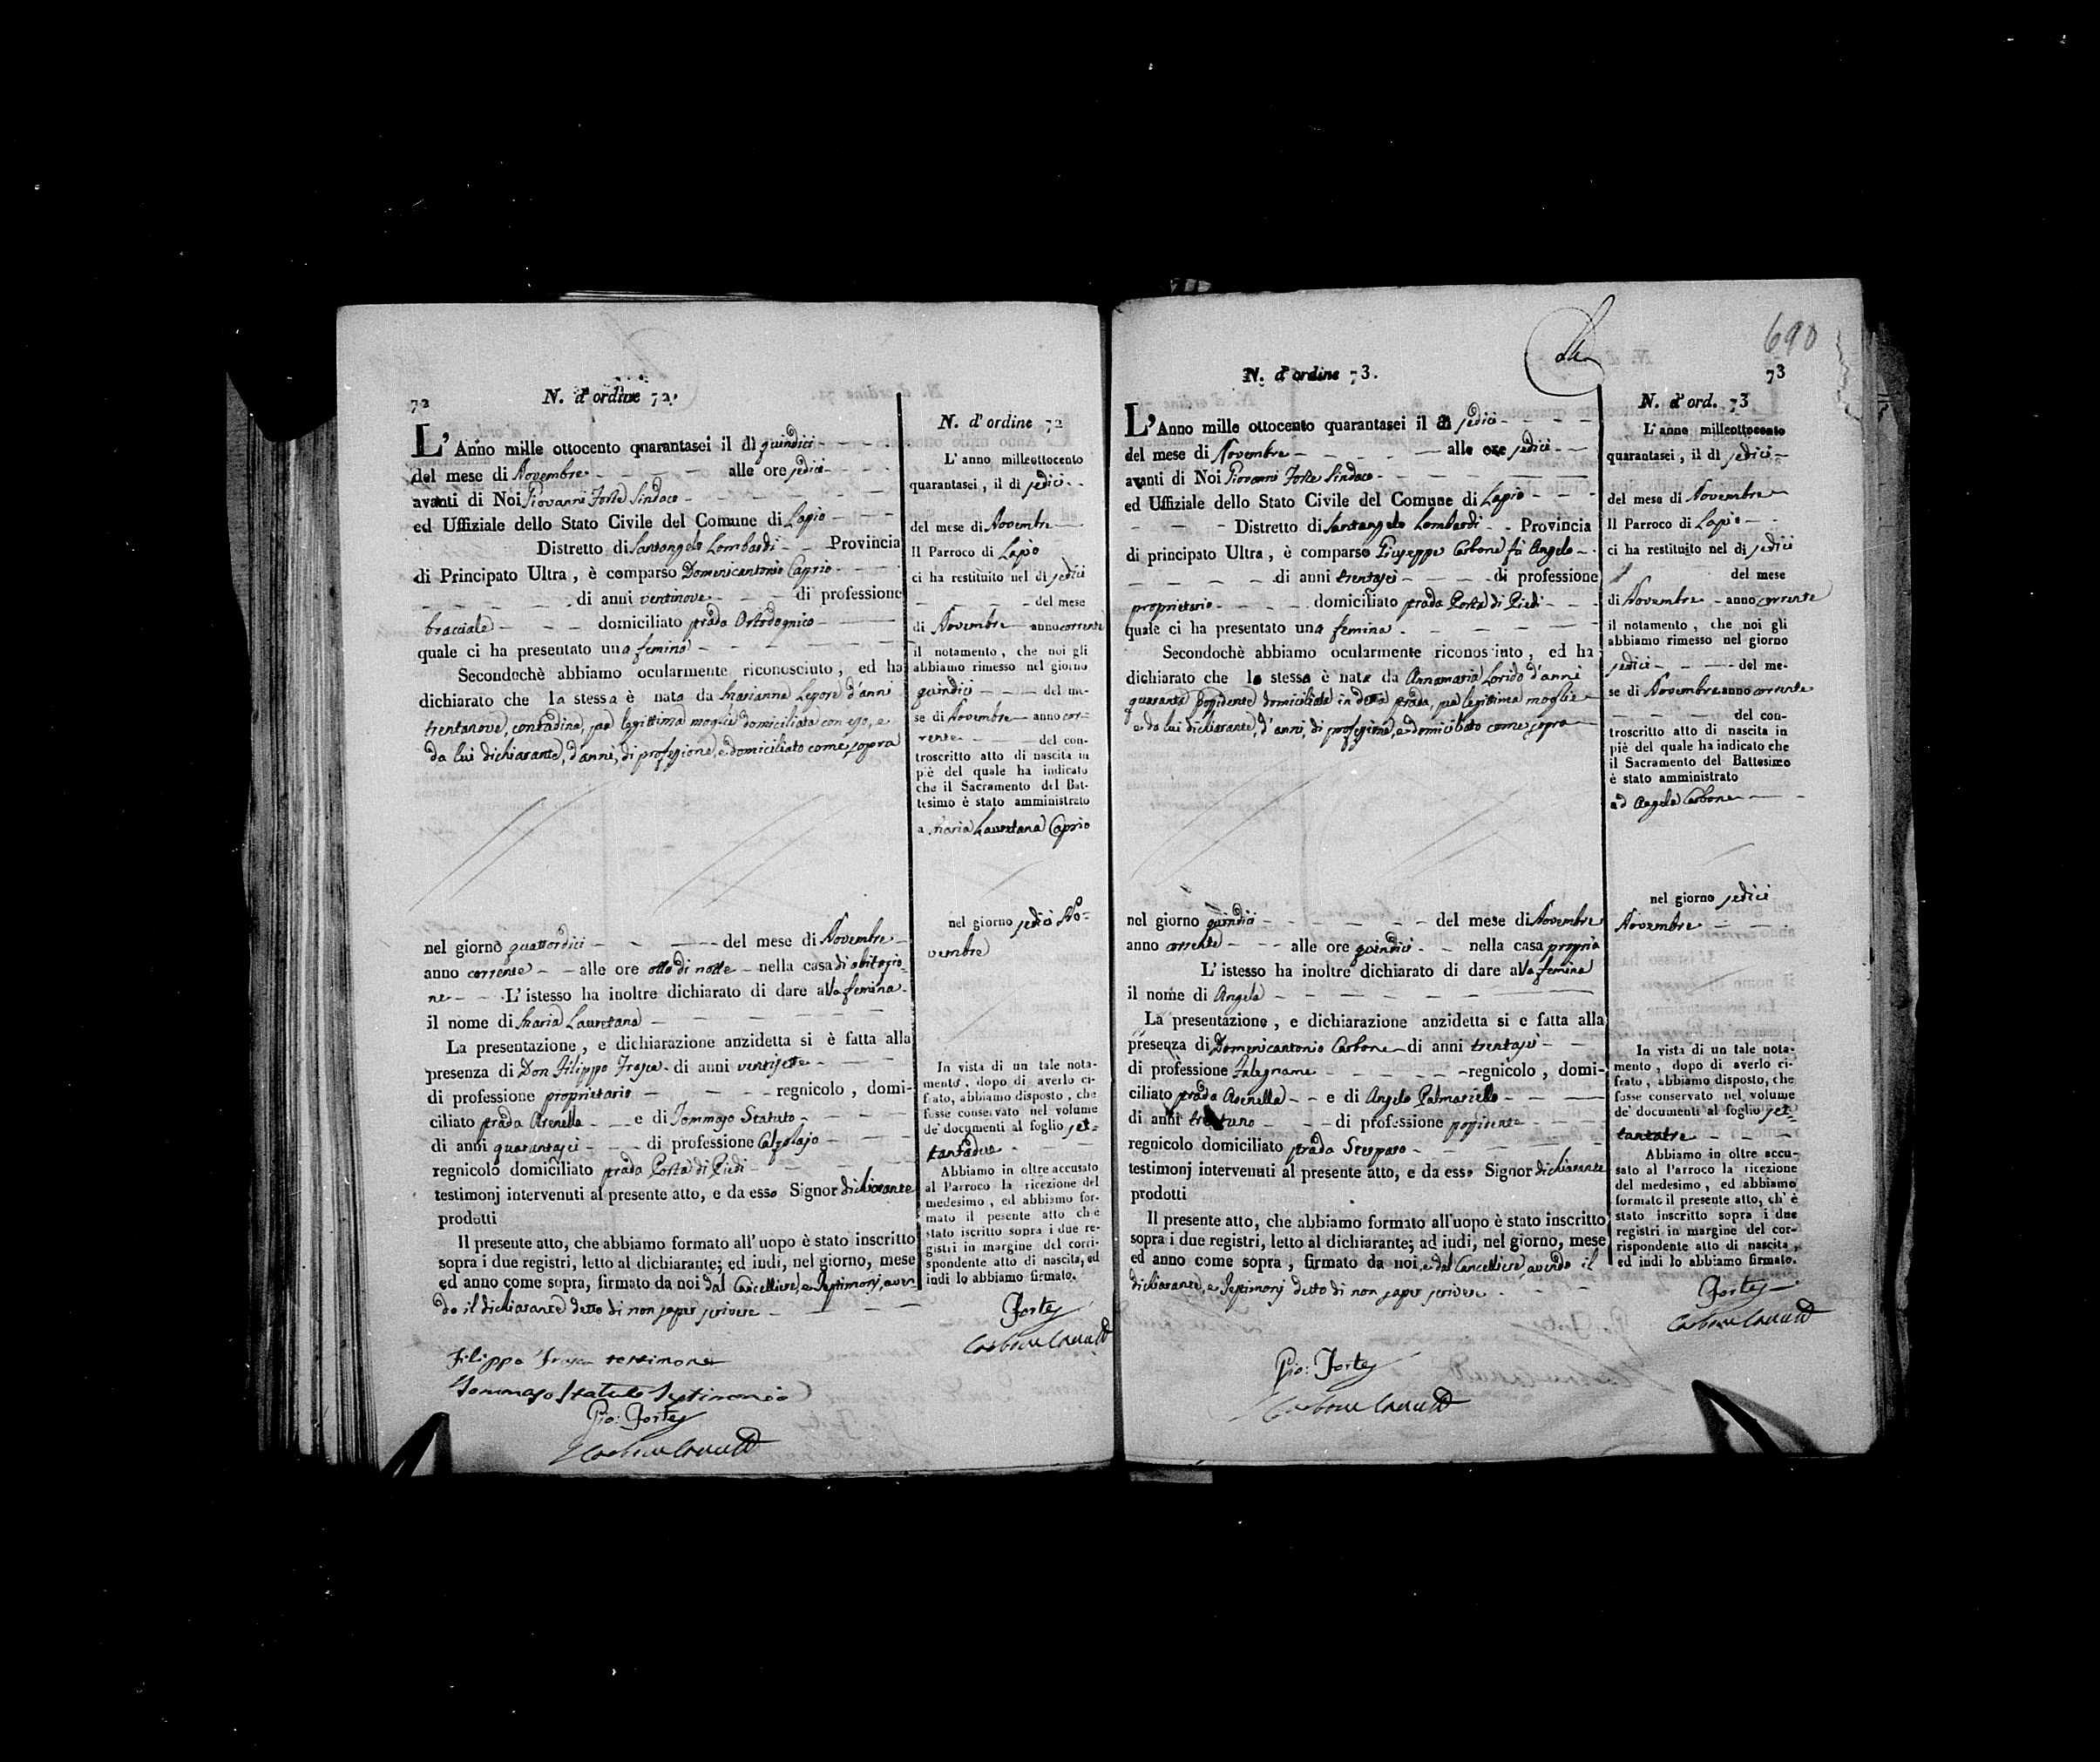 72
N. d'ordine 72.
L'Anno mille ottocento quarantasei il dì quindici
del mese di Novembre alle ore sedici
avanti di Noi Giovanni Forte Sindaco
ed Uffiziale dello Stato Civile del Comune di Lapio
Distretto di Santangelo Lombardi Provincia
di Principato Ultra, è comparso Domenicantonio Caprio
di anni ventinove di professione
bracciale domiciliato strada
quale ci ha presentato una femina
Secondochè abbiamo ocularmente riconosciuto, ed ha
dichiarato che la stessa è nata da Marianna Lepore d'anni
trentanove, contadina, sua legittima moglie domiciliata con esso, e
da lui dichiarante, d'anni, di professione, e domiciliato come sopra
nel giorno quattordici del mese di Novembre
anno corrente alle ore otto di notte nella casa di abitazio-
ne L'istesso ha inoltre dichiarato di dare alla femina
il nome di Maria Lauretana
La presentazione, e dichiarazione anzidetta si è fatta alla
presenza di Don Filippo Frasca di anni ventisette
di professione proprietario regnicolo, domi-
ciliato strada Arenella e di Tommaso Statuto
di anni quarantasei di professione Calzolajo
regnicolo domiciliato strada Porta di Piedi
testimonj intervenuti al presente atto, e da esso Signor dichiarante
prodotti
Il presente atto, che abbiamo formato all'uopo è stato inscritto
sopra i due registri, letto al dichiarante; ed indi, nel giorno, mese
ed anno come sopra, firmato da noi dal Cancelliere, e Testimonj, aven-
do il dichiarante detto di non saper scrivere
Filippo Frasca testimone
Tommaso Statuto Testimonio
Gio: Forte
Carbone
N. d'ordine 72
L'anno milleottocento
quarantasei, il dì sedici
del mese di Novembre
Il Parroco di Lapio
ci ha restituito nel dì sedici
del mese
di Novembre anno corrente
il notamento, che noi gli
abbiamo rimesso nel giorno
quindici del me-
se di Novembre anno cor-
rente del con-
troscritto atto di nascita in
piè del quale ha indicato
che il Sacramento del Bat-
tesimo è stato amministrato
a Maria Lauretana Caprio
nel giorno sedici No-
vembre
In vista di un tale nota-
mento, dopo di averlo ci-
frato, abbiamo disposto, che
fosse conservato nel volume
de' documenti al foglio set-
tantadue
Abbiamo in oltre accusato
al Parroco la ricezione del
medesimo, ed abbiamo for-
mato il pesente atto che
stato iscritto sopra i due re-
gistri in margine del corri-
spondente atto di nascita, ed
indi lo abbiamo firmato.
Forte
Carbone
690
73
N. d'ordine 73.
L'Anno mille ottocento quarantasei il dì sedici
del mese di Novembre alle ore sedici
avanti di Noi Giovanni Forte Sindaco
ed Uffiziale dello Stato Civile del Comune di Lapio
Distretto di Santangelo Lombardi Provincia
di principato Ultra, è comparso Giuseppe Carbone fu Angelo
di anni trentasei di professione
proprietario domiciliato strada Porta di Piedi
quale ci ha presentato una femina
Secondochè abbiamo ocularmente riconosciuto, ed ha
dichiarato che la stessa è nata da Annamaria Lorido d'anni
quaranta possidente domiciliata in detta strada, sua legittima moglie
e da lui dichiarante, d'anni, di professione, e domiciliato come sopra
nel giorno quindici del mese di Novembre
anno corrente alle ore quindici nella casa propria
L'istesso ha inoltre dichiarato di dare alla femina
il nome di Angela
La presentazione, e dichiarazione anzidetta si e fatta alla
presenza di Domenicantonio Carbone di anni trentasei
di professione Falegname regnicolo, domi-
ciliato strada Arenella e di Angelo Palmariello
di anni trentuno di professione possidente
regnicolo domiciliato strada
testimonj intervenuti al presente atto, e da esso Signor dichiarante
prodotti
Il presente atto, che abbiamo formato all'uopo è stato inscritto
sopra i due registri, letto al dichiarante; ad indi, nel giorno, mese
ed anno come sopra, firmato da noi, e dal Cancelliere, avendo il
dichiarante, e Testimonj detto di non saper scrivere
Gio: Forte
Carbone
N. d'ord. 73
L'anno milleottocento
quarantasei, il dì sedici
del mese di Novembre
Il Parroco di Lapio
ci ha restituito nel dì sedici
del mese
di Novembre anno corrente
il notamento, che noi gli
abbiamo rimesso nel giorno
sedici del me-
se di Novembre anno corrente
del con-
troscritto atto di nascita in
piè del quale ha indicato che
il Sacramento del Battesimo
è stato amministrato
ad Angela Carbone
nel giorno sedici
Novembre
In vista di un tale nota-
mento, dopo di averlo ci-
frato, abbiamo disposto, che
fosse conservato nel volume
de' documenti al foglio set-
tantatre
Abbiamo in oltre accu-
sato al Parroco la ricezione
del medesimo, ed abbiamo
formato il presente atto, ch' è
stato inscritto sopra i due
registri in margine del cor-
rispondente atto di nascita,
ed indi lo abbiamo firmato.
Forte
Carbone